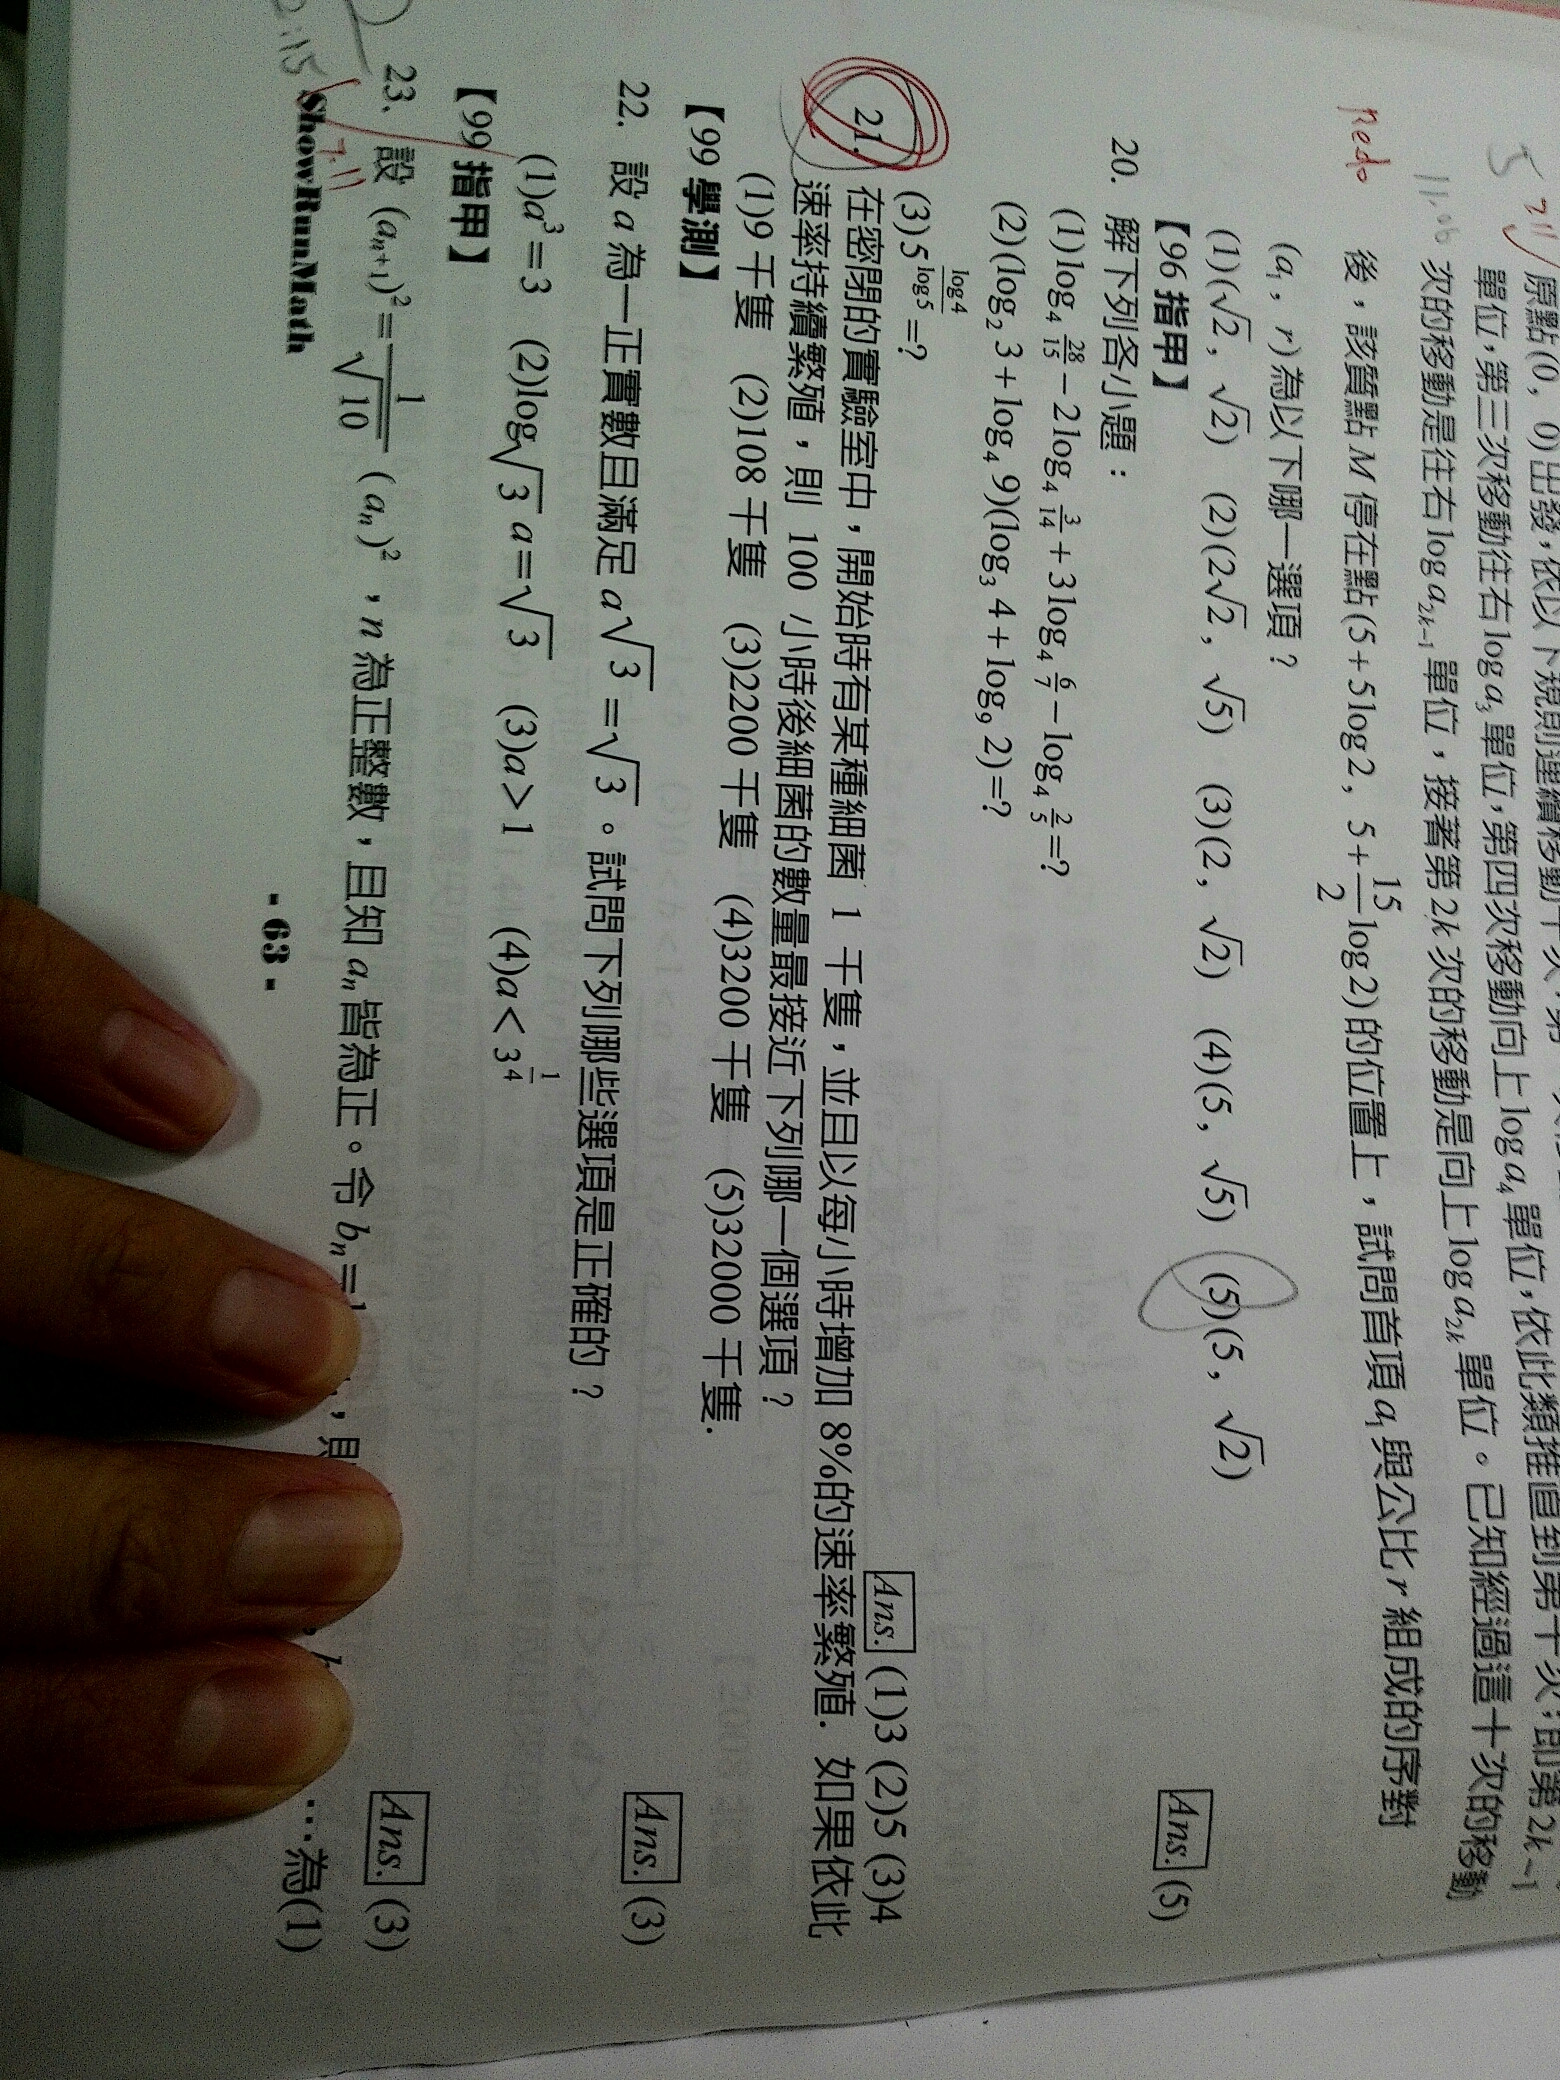 原點(0,0)出發,依以下規則連續移動十次,第
單位,第三次移動往右log a₃單位,第四次移動向上log a₄單位,依此類推直到第十次;即第2k−1
次的移動是往右log a₂ₖ₋₁單位,接著第2k次的移動是向上log a₂ₖ單位。已知經過這十次的移動
後,該質點M停在點(5+5log2,5+15/2 log2)的位置上,試問首項a₁與公比r組成的序對
(a₁,r)為以下哪一選項?
(1)(√2,√2) (2)(2√2,√5) (3)(2,√2) (4)(5,√5) (5)(5,√2)
【96指甲】 Ans. (5)
20. 解下列各小題:
(1)log₄ 28/15 − 2log₄ 3/14 + 3log₄ 6/7 − log₄ 2/5 =?
(2)(log₂ 3+log₄ 9)(log₃ 4+log₉ 2)=?
(3)5^(log4/log5) =? Ans. (1)3 (2)5 (3)4
21. 在密閉的實驗室中,開始時有某種細菌 1 千隻,並且以每小時增加 8%的速率繁殖. 如果依此
速率持續繁殖,則 100 小時後細菌的數量最接近下列哪一個選項?
(1)9 千隻 (2)108 千隻 (3)2200 千隻 (4)3200 千隻 (5)32000 千隻.
【99 學測】 Ans. (3)
22. 設 a 為一正實數且滿足 a√3 =√3。試問下列哪些選項是正確的?
(1)a³=3 (2)log√3 a=√3 (3)a>1 (4)a<3^(1/4)
【99 指甲】 Ans. (3)
23. 設 (aₙ₊₁)²= 1/√10 (aₙ)²,n 為正整數,且知 aₙ 皆為正。令 bₙ=
…為(1)
ShowRunMath
- 63 -
Redo
11.06
7.11
7/11